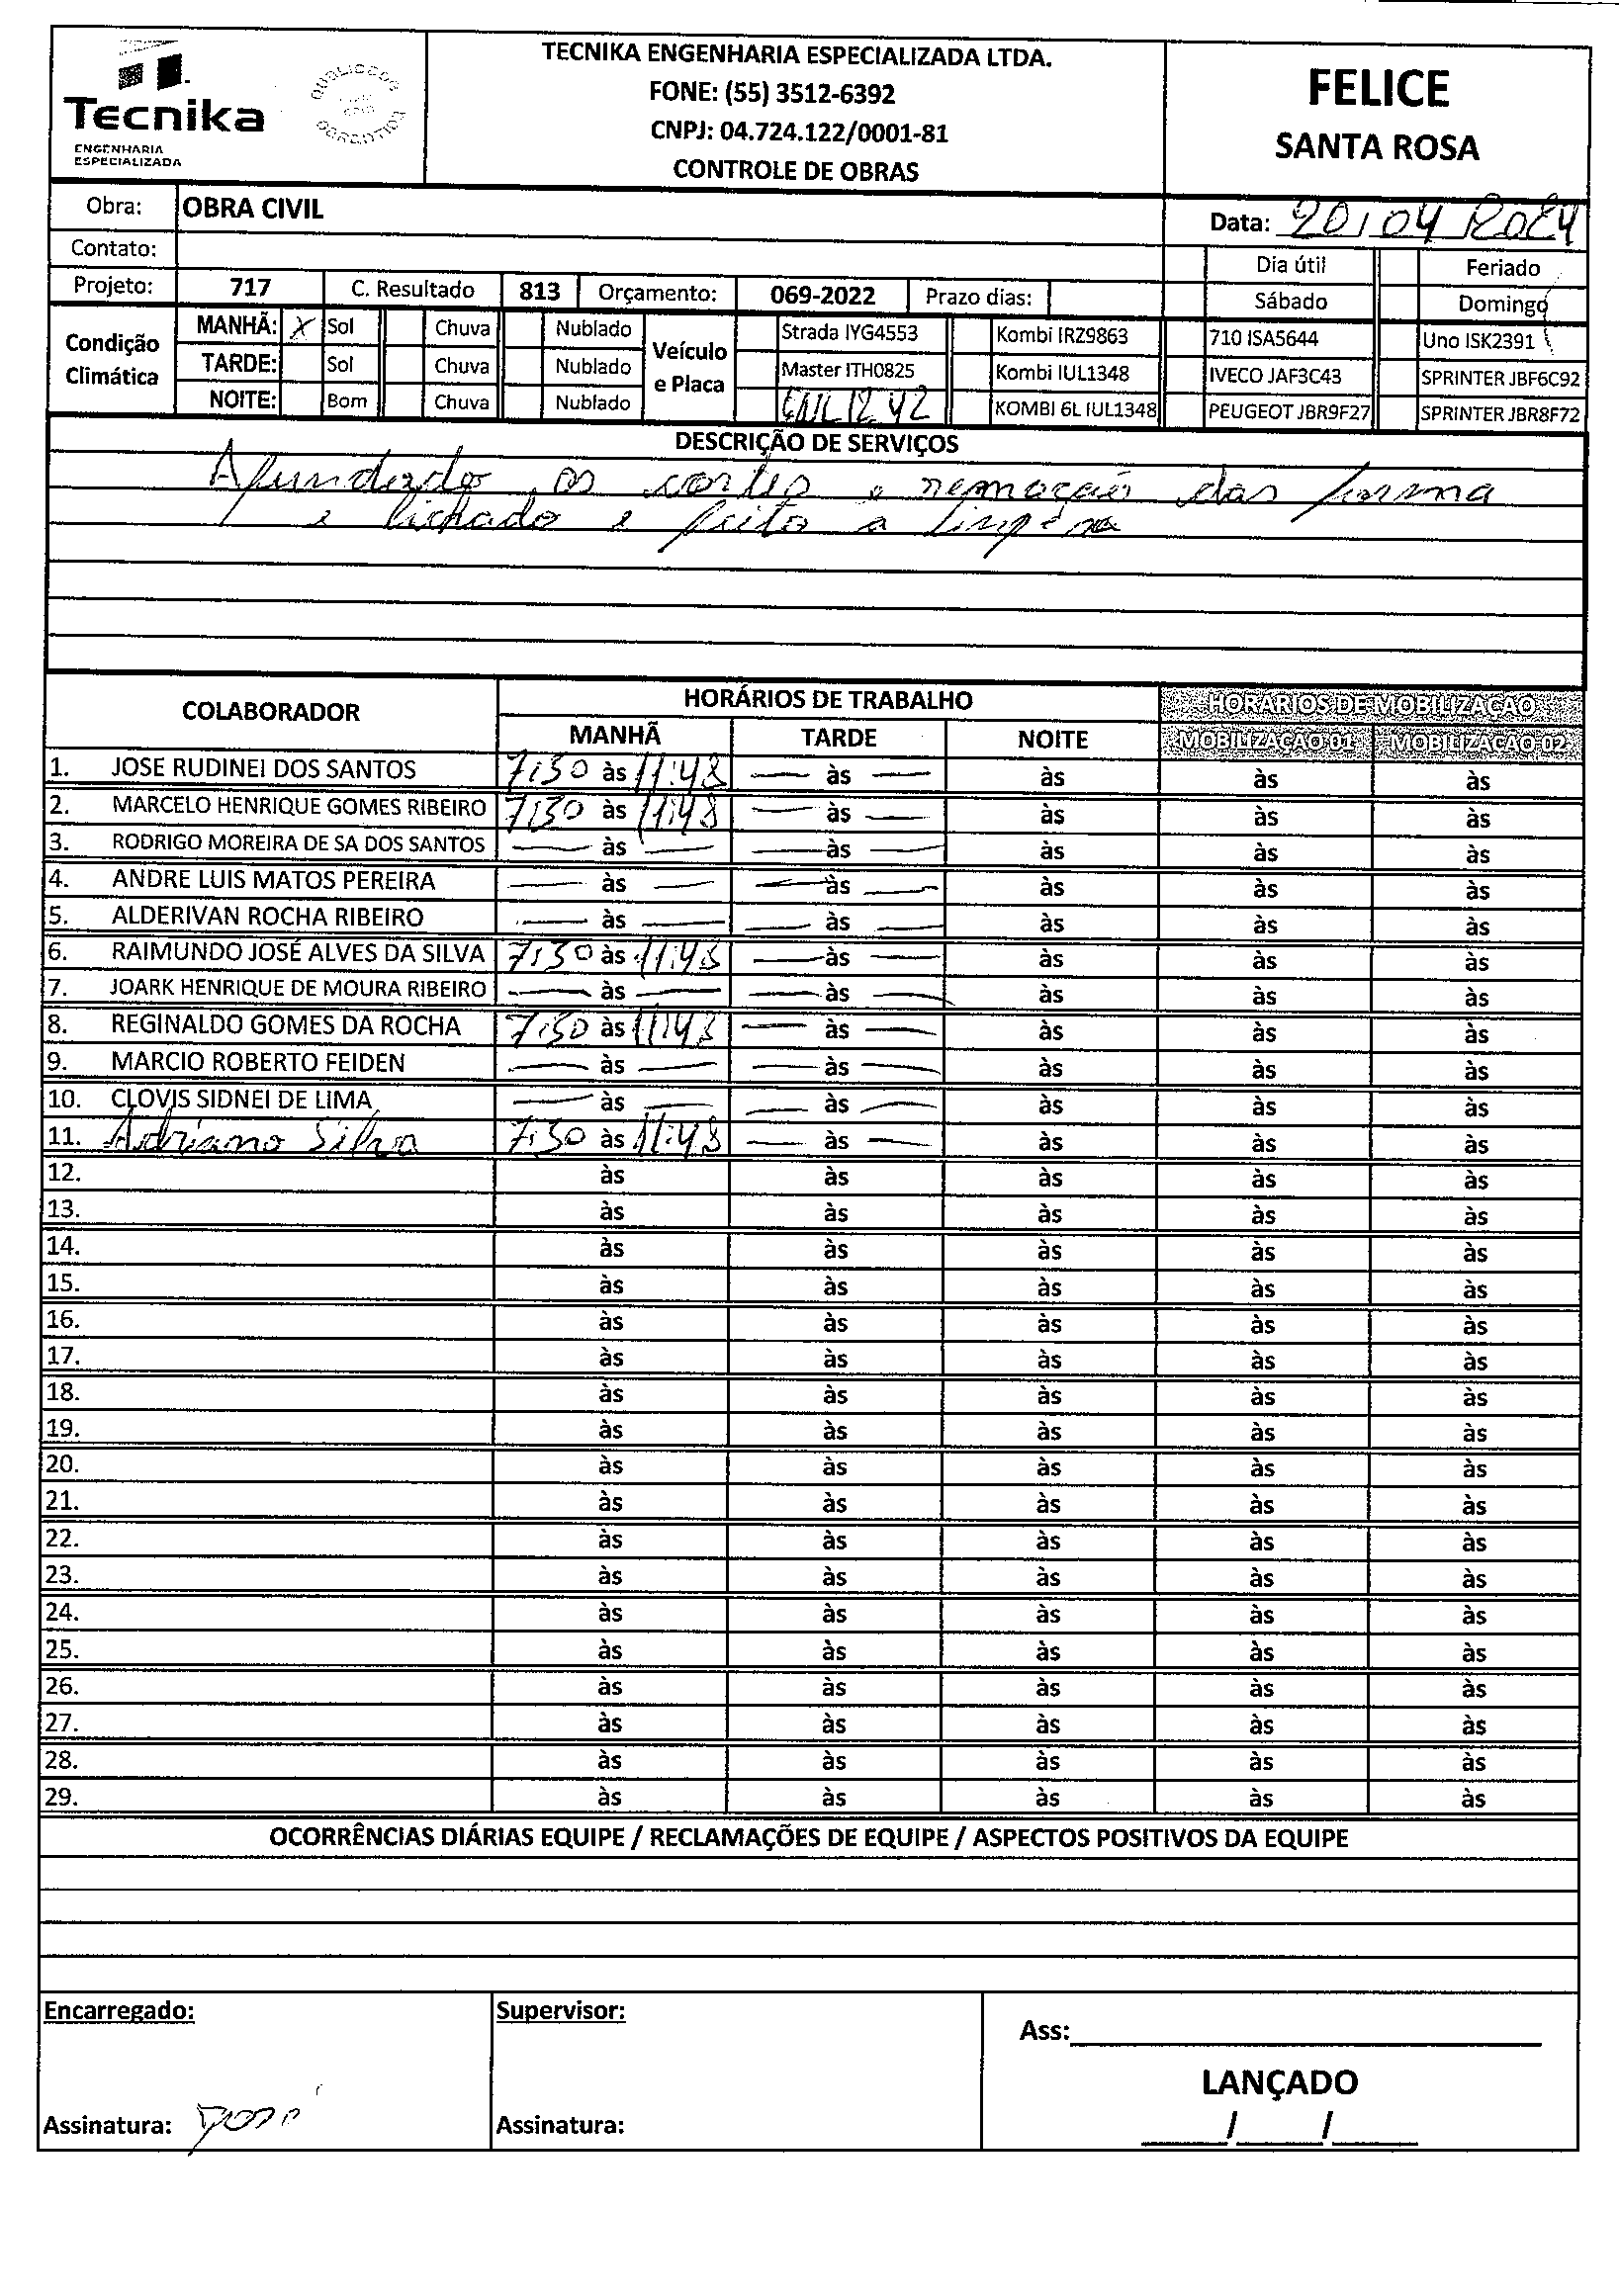 Tecnika
ENGENHARIA
ESPECIALIZADA
TECNIKA ENGENHARIA ESPECIALIZADA LTDA.
FONE: (55) 3512-6392
CNPJ: 04.724.122/0001-81
CONTROLE DE OBRAS
FELICE
SANTA ROSA
Obra: OBRA CIVIL
Data: 20/04 2024
Contato:
Dia útil Feriado
Projeto: 717 C. Resultado 813 Orçamento: 069-2022 Prazo dias:
Sábado Domingo
Condição Climática
MANHÃ: X Sol Chuva Nublado
TARDE: Sol Chuva Nublado
NOITE: Bom Chuva Nublado
Veículo e Placa
Strada IYG4553 Kombi IRZ9863 710 ISA5644 Uno ISK2391
Master ITH0825 Kombi IUL1348 IVECO JAF3C43 SPRINTER JBF6C92
KOMBI 6L IUL1348 PEUGEOT JBR9F27 SPRINTER JBR8F72
DESCRIÇÃO DE SERVIÇOS
Afundado os cortes e remoção das forma
e lichado e feito a limpéza
COLABORADOR HORÁRIOS DE TRABALHO HORÁRIOS DE MOBILIZAÇÃO
MANHÃ TARDE NOITE MOBILIZAÇÃO 01 MOBILIZAÇÃO 02
1. JOSE RUDINEI DOS SANTOS 7:30 às 11:48 — às — às às às
2. MARCELO HENRIQUE GOMES RIBEIRO 7:30 às 11:48 — às — às às às
3. RODRIGO MOREIRA DE SA DOS SANTOS — às — — às — às às às
4. ANDRE LUIS MATOS PEREIRA — às — — às — às às às
5. ALDERIVAN ROCHA RIBEIRO — às — — às — às às às
6. RAIMUNDO JOSÉ ALVES DA SILVA 7:30 às 11:48 — às — às às às
7. JOARK HENRIQUE DE MOURA RIBEIRO — às — — às — às às às
8. REGINALDO GOMES DA ROCHA 7:30 às 11:48 — às — às às às
9. MARCIO ROBERTO FEIDEN — às — — às — às às às
10. CLOVIS SIDNEI DE LIMA — às — — às — às às às
11. Adriano Silva 7:30 às 11:48 — às — às às às
12. às às às às às
13. às às às às às
14. às às às às às
15. às às às às às
16. às às às às às
17. às às às às às
18. às às às às às
19. às às às às às
20. às às às às às
21. às às às às às
22. às às às às às
23. às às às às às
24. às às às às às
25. às às às às às
26. às às às às às
27. às às às às às
28. às às às às às
29. às às às às às
OCORRÊNCIAS DIÁRIAS EQUIPE / RECLAMAÇÕES DE EQUIPE / ASPECTOS POSITIVOS DA EQUIPE
Encarregado: Supervisor:
Ass:
LANÇADO
Assinatura: José Assinatura:
___/___/___